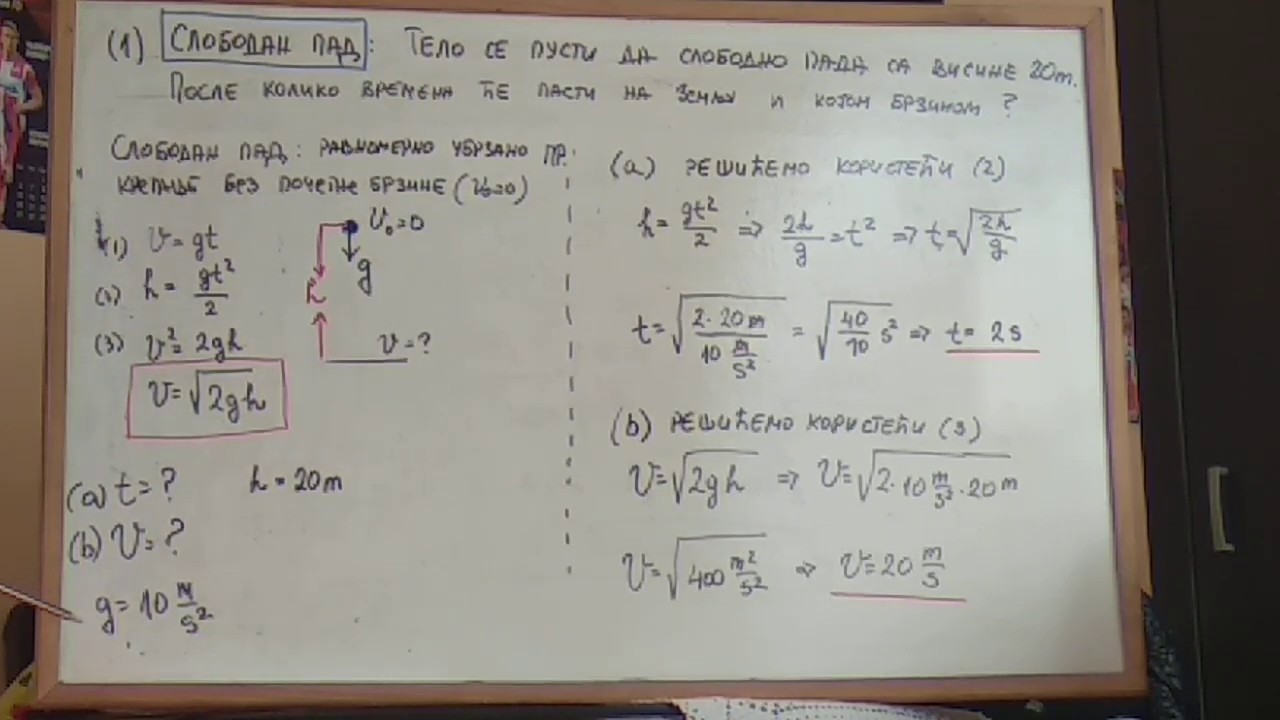 (1) СЛОБОДАН ПАД: ТЕЛО СЕ ПУСТИ ДА СЛОБОДНО ПАДА СА ВИСИНЕ 20m.
ПОСЛЕ КОЛИКО ВРЕМЕНА ЋЕ ПАСТИ НА ЗЕМЉУ И КОЈОМ БРЗИНОМ?
СЛОБОДАН ПАД: РАВНОМЕРНО УБРЗАНО ПР.
КРЕТАЊЕ БЕЗ ПОЧЕТНЕ БРЗИНЕ (v₀=0)
(1) v = gt
(2) h = gt²/2
(3) v² = 2gh
v = √2gh
v₀ = 0
g
h
v = ?
(a) t = ? h = 20m
(b) v = ?
g = 10 m/s²
(a) РЕШИЋЕМО КОРИСТЕЋИ (2)
h = gt²/2 => 2h/g = t² => t = √2h/g
t = √(2·20m)/(10 m/s²) = √40/10 s² => t = 2s
(b) РЕШИЋЕМО КОРИСТЕЋИ (3)
v = √2gh => v = √2·10 m/s²·20m
v = √400 m²/s² => v = 20 m/s